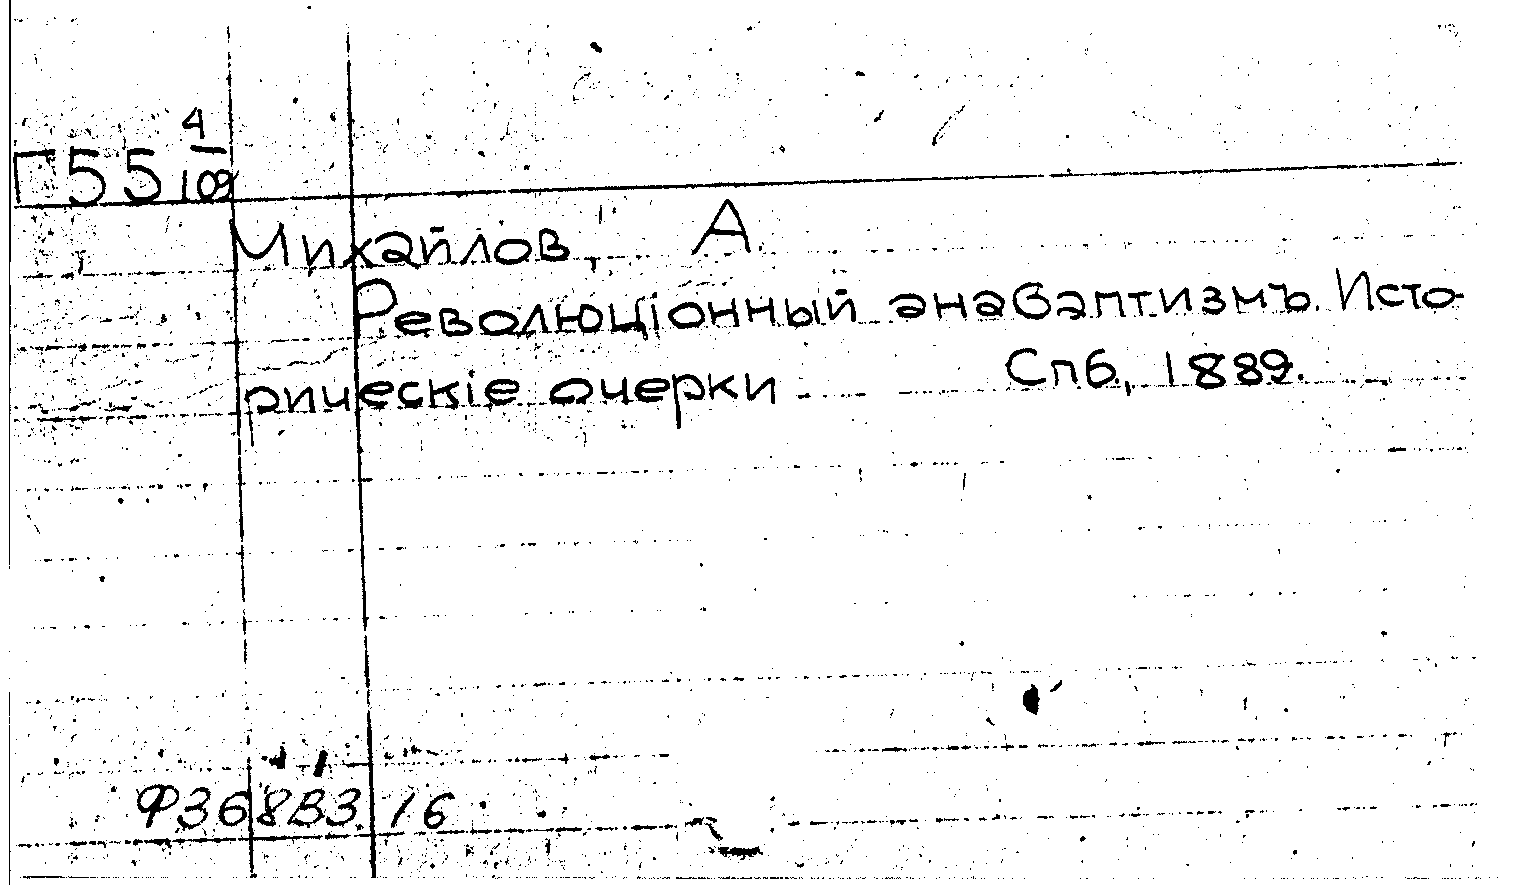 П55 4/109
Михайлов, А.
Революціонный анабаптизмъ. Исто-
рическіе очерки Спб., 1889.
Ф368В3 16